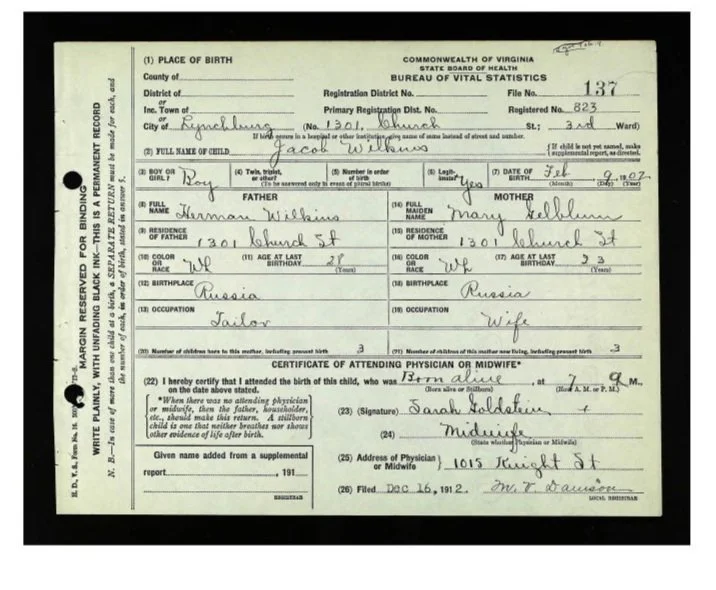 (1) PLACE OF BIRTH
County of
District of
or
Inc. Town of
or
City of Lynchburg (No. 1301, Church St.; 3rd Ward)
COMMONWEALTH OF VIRGINIA
STATE BOARD OF HEALTH
BUREAU OF VITAL STATISTICS
Registration District No. File No. 137
Primary Registration Dist. No. Registered No. 823
If birth occurs in a hospital or other institution, give name of same instead of street and number.
(2) FULL NAME OF CHILD Jacob Wilkins
{If child is not yet named, make supplemental report, as directed.
(3) BOY OR GIRL? Boy
(4) Twin, triplet, or other?
(5) Number in order of birth
(To be answered only in event of plural births)
(6) Legitimate? Yes
(7) DATE OF BIRTH Feb 9, 1902
(Month) (Day) (Year)
FATHER
(8) FULL NAME Herman Wilkins
(9) RESIDENCE OF FATHER 1301 Church St
(10) COLOR OR RACE Wh
(11) AGE AT LAST BIRTHDAY 28
(Years)
(12) BIRTHPLACE
Russia
(13) OCCUPATION
Tailor
(20) Number of children born to this mother, including present birth 3
MOTHER
(14) FULL MAIDEN NAME Mary Gelblum
(15) RESIDENCE OF MOTHER 1301 Church St
(16) COLOR OR RACE Wh
(17) AGE AT LAST BIRTHDAY 23
(Years)
(18) BIRTHPLACE
Russia
(19) OCCUPATION
Wife
(21) Number of children of this mother now living, including present birth 3
CERTIFICATE OF ATTENDING PHYSICIAN OR MIDWIFE*
(22) I hereby certify that I attended the birth of this child, who was Born alive, at 7 a M.,
on the date above stated. (Born alive or Stillborn) (Hour A. M. or P. M.)
{*When there was no attending physician
or midwife, then the father, householder,
etc., should make this return. A stillborn
child is one that neither breathes nor shows
other evidence of life after birth.
(23) (Signature) Sarah Goldstein +
(24) Midwife
(State whether Physician or Midwife)
Given name added from a supplemental
report , 191
REGISTRAR
(25) Address of Physician or Midwife 1015 Knight St
(26) Filed Dec 16, 1912. M. V. Dawson
LOCAL REGISTRAR
MARGIN RESERVED FOR BINDING
WRITE PLAINLY, WITH UNFADING BLACK INK—THIS IS A PERMANENT RECORD
N. B.—In case of more than one child at a birth, a SEPARATE RETURN must be made for each, and
the number of each, in order of birth, stated in answer 5.